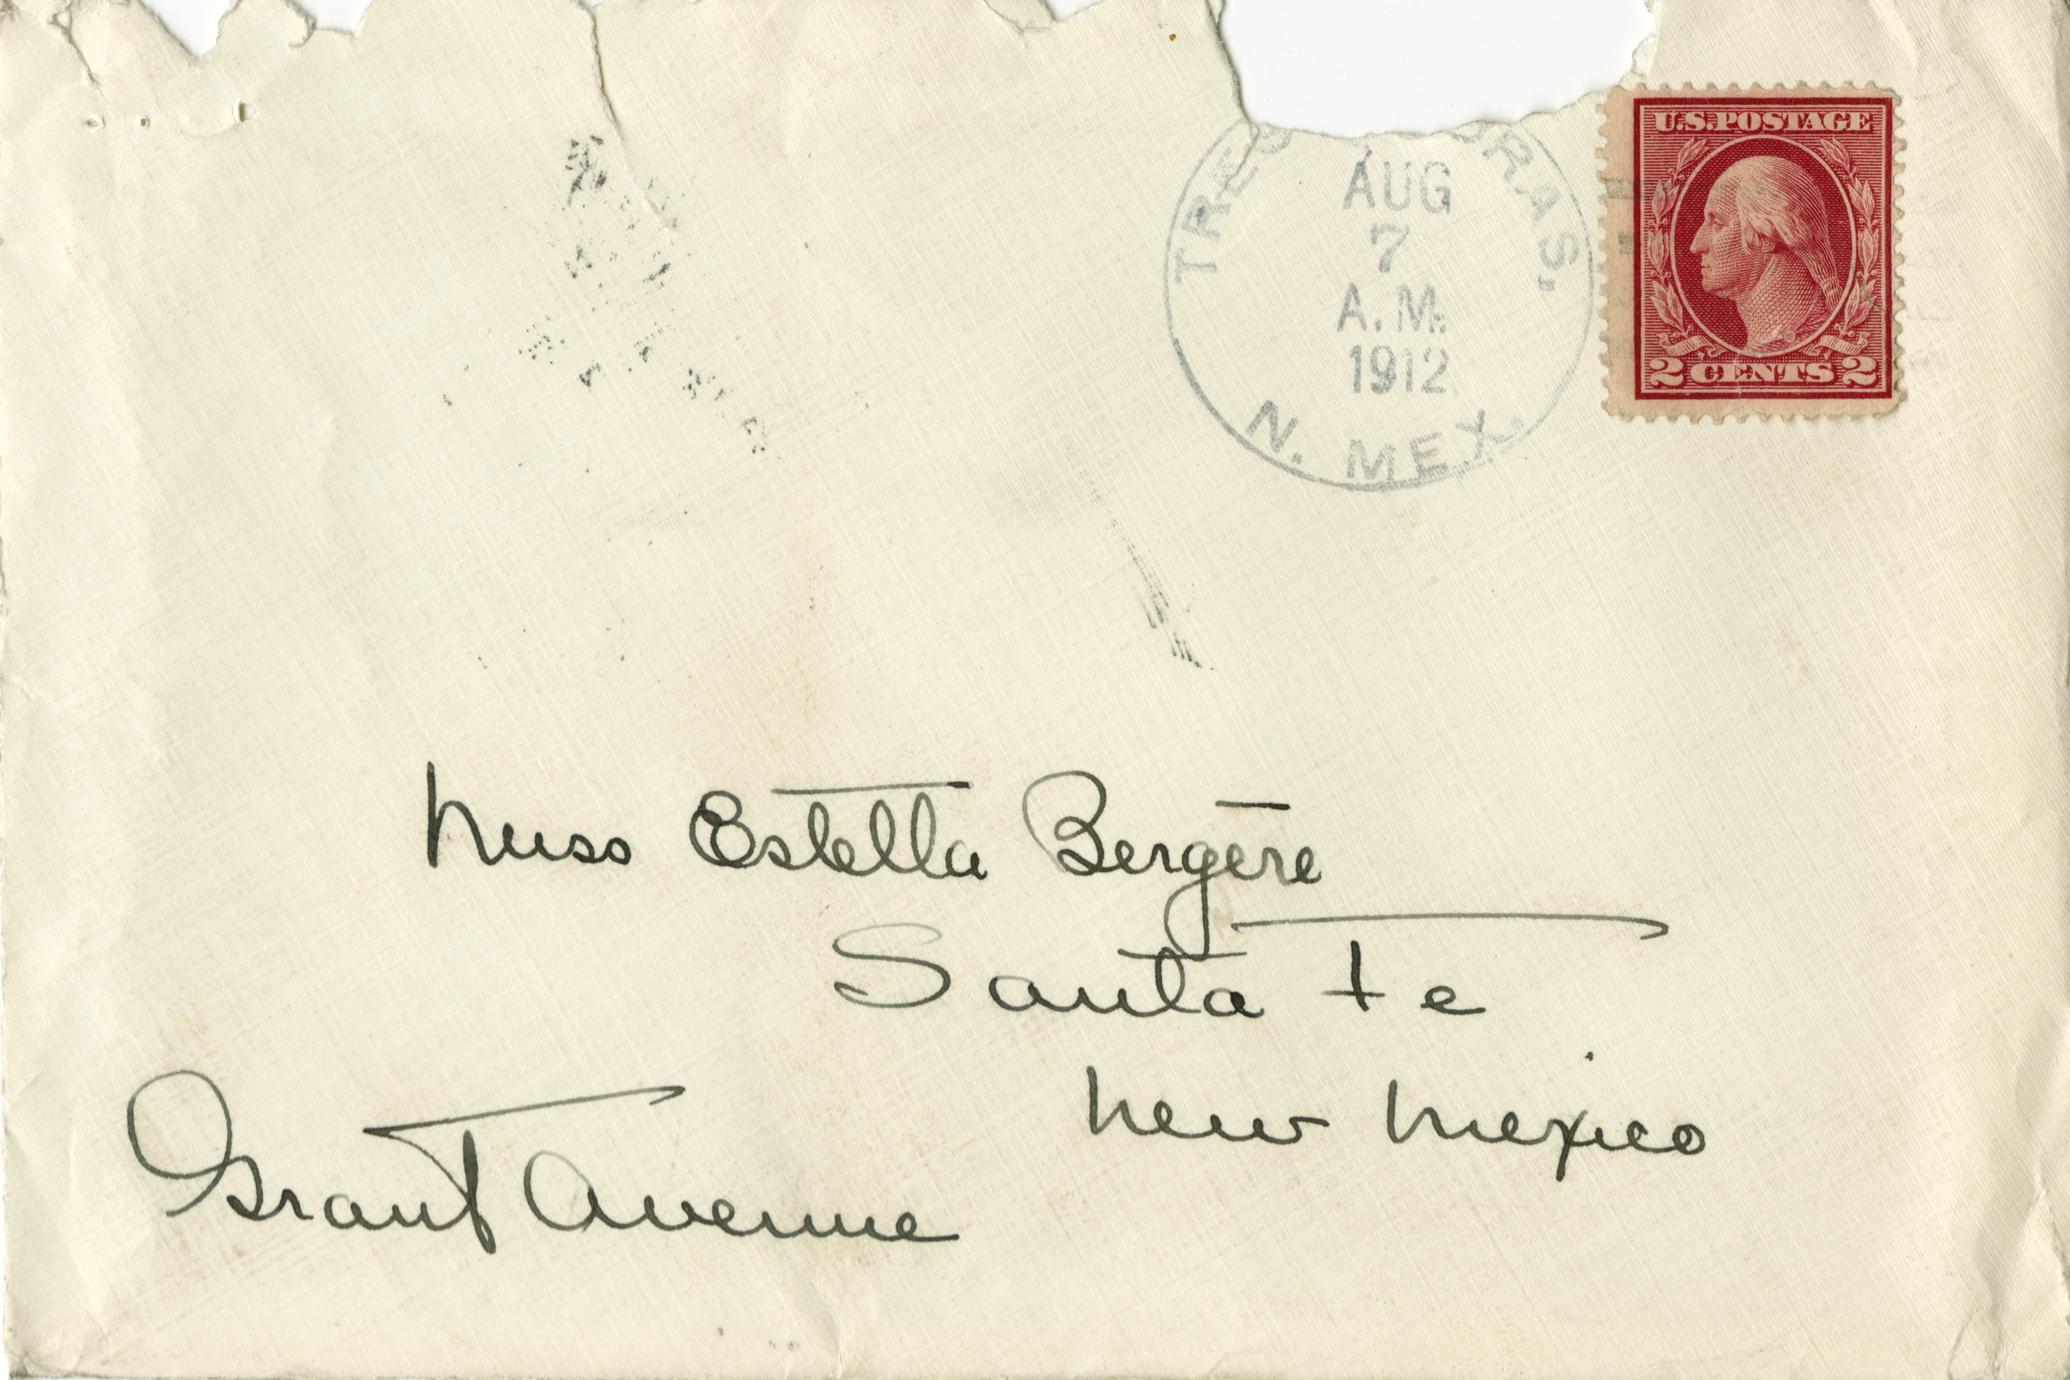 U.S. POSTAGE
2 CENTS 2
AUG
7
A.M.
1912
N. MEX.
Miss Estella Bergēre
Santa Fe
New Mexico
Grant Avenue